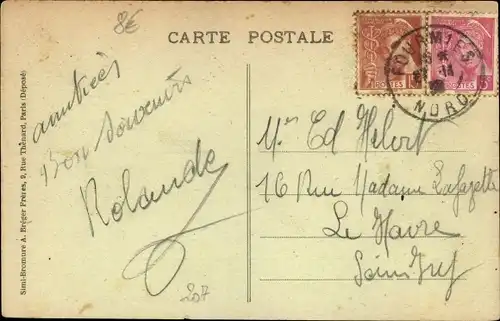 8€
CARTE POSTALE
FOURMIES
NORD
POSTES
POSTES
amitiés
Bon Souvenir
Rolande
Ed
16 Rue Madame Lafayette
Le Havre
Seine Inf
207
Simi-Bromure A. Bréger Frères, 9, Rue Thénard, Paris (Déposé)